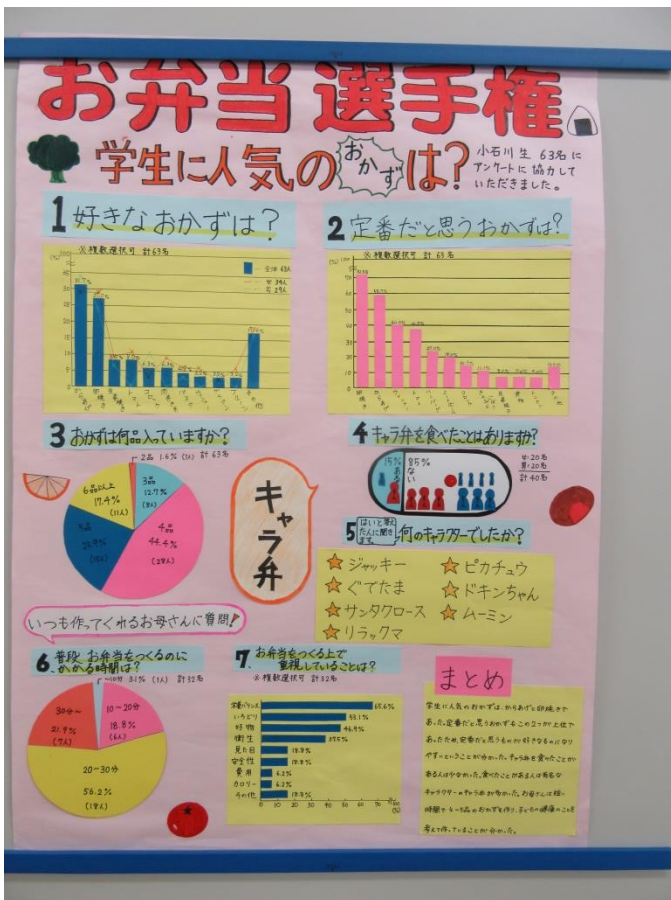 お弁当選手権
学生に人気のおかずは?
小石川生 63名に
アンケートに協力して
いただきました。
1 好きなおかずは?
※複数選択可 計63名
全体 63人
2 定番だと思うおかずは?
※複数選択可 計63名
3 おかずは何品入っていますか?
2品 1.6% (1人) 計63名
3品
12.7%
(8人)
4品
44.4%
(28人)
6品以上
17.4%
(11人)
キャラ弁
4 キャラ弁を食べたことはありますか?
15% ある
85% ない
女:20名
男:20名
計40名
5 はいと答えた人に聞きます。 何のキャラクターでしたか?
ジャッキー
ぐでたま
サンタクロース
リラックマ
ピカチュウ
ドキンちゃん
ムーミン
いつも作ってくれるお母さんに質問!
6. 普段、お弁当をつくるのに
かかる時間は?
~10分 3.1% (1人) 計32名
10~20分
18.8%
(6人)
20~30分
56.2%
(18人)
30分~
21.9%
(7人)
7. お弁当をつくる上で
重視していることは?
※複数選択可 計32名
栄養バランス 65.6%
いろどり 53.1%
好物 46.9%
衛生 37.5%
見た目 18.8%
安全性 18.8%
費用 6.2%
カロリー 6.2%
その他 18.8%
0 10 20 30 40 50 60 70 80
(%)
まとめ
学生に人気のおかずは、からあげと卵焼きで
あった。定番だと思うおかずもこの2つが上位で
あったため、定番だと思うものが好きなものになり
やすいということが分かった。キャラ弁を食べたことが
ある人は少なかった。食べたことがある人は有名な
キャラクターのキャラ弁が多かった。お母さんは短い
時間で4~5品のおかずを作り、子どもの健康のことを
考えて作っていることが分かった。